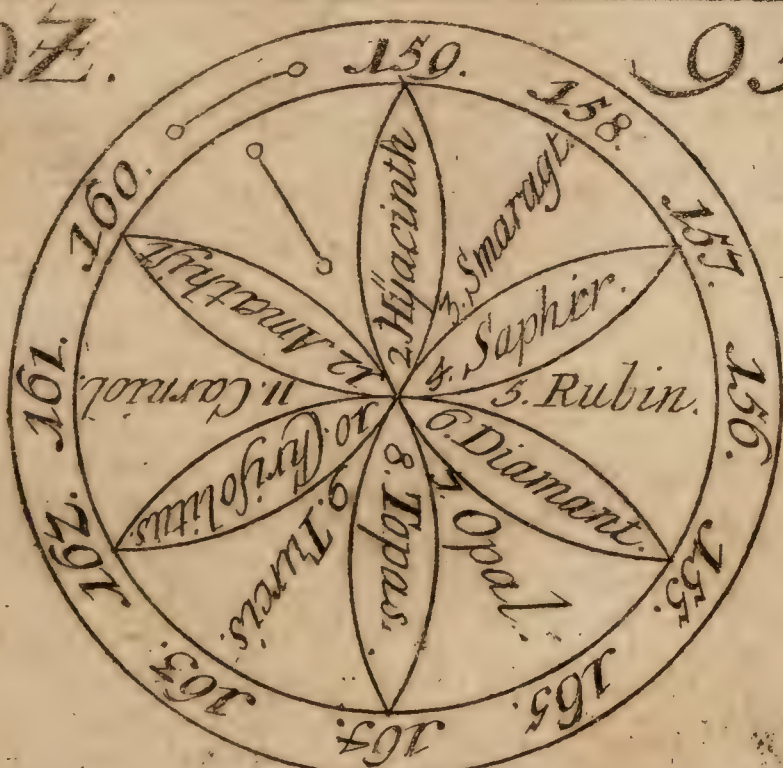 159.
158.
157.
156.
155.
165.
164.
163.
162.
161.
160.
2 Hÿacinth
3. Smaragt.
4. Saphir.
5. Rubin.
6. Diamant.
7. Opal.
8. Topas.
9. Turcis.
10. Chriſolitus.
11. Carniol.
12. Amathiſt